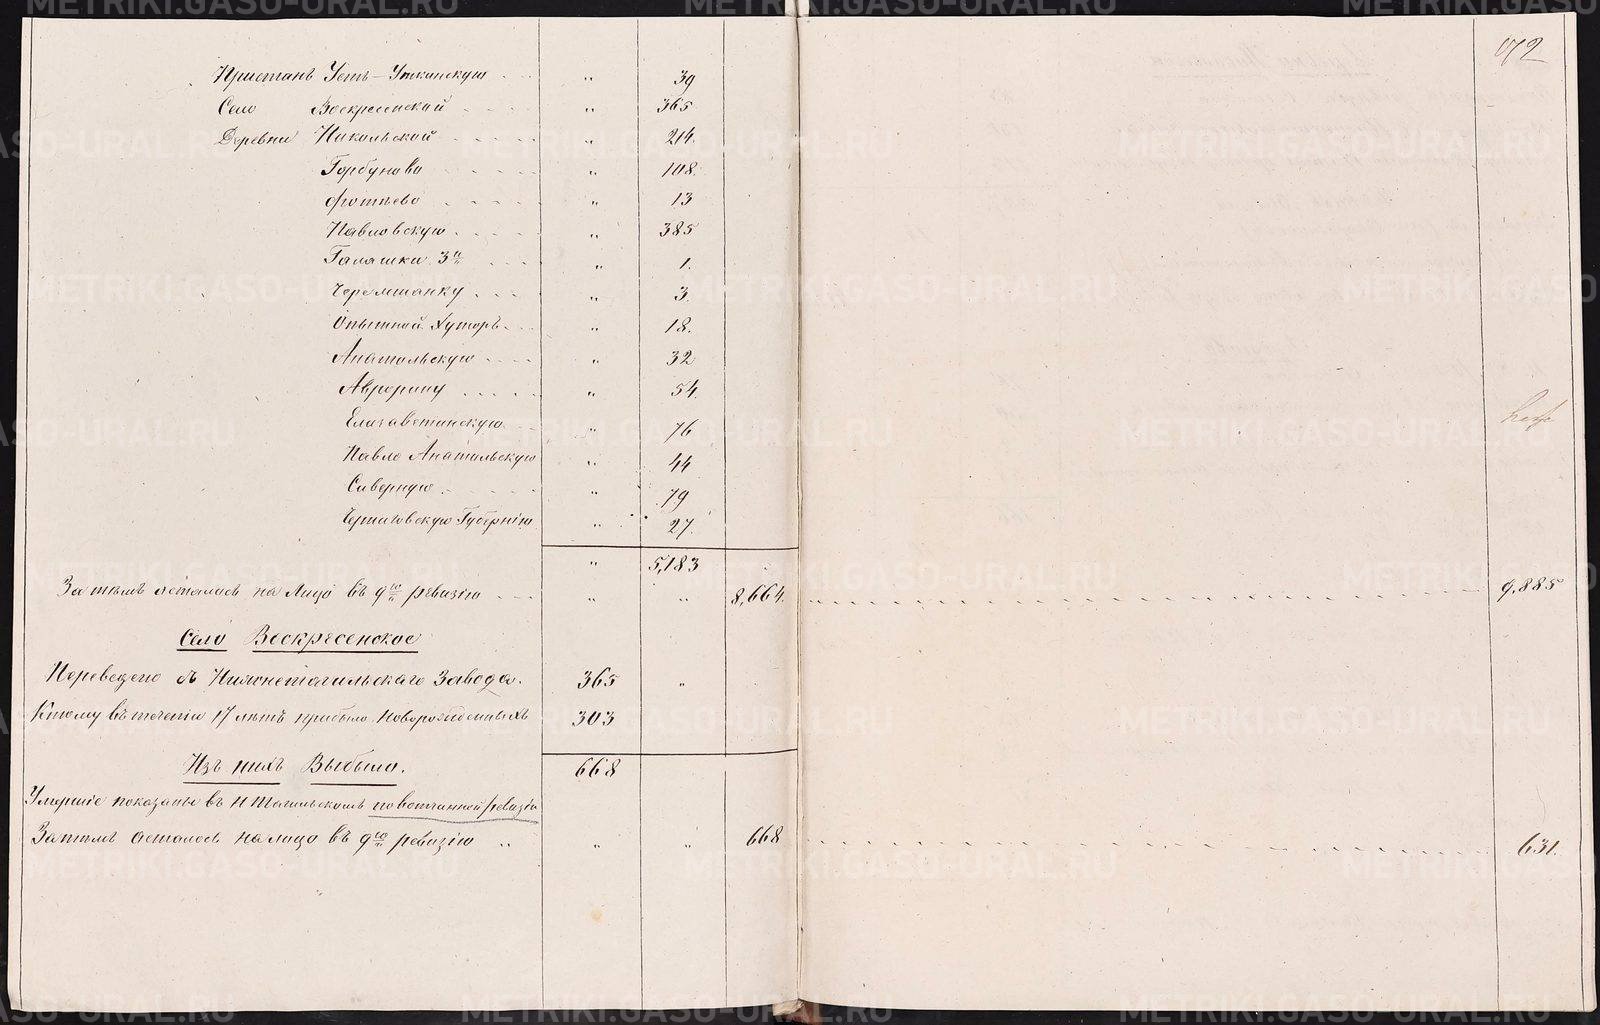 072
Пристань Усть-Уткинскую " 39
Село Воскресенской " 365
Деревни Никольской " 214.
Горбуново " 108.
Фотеево " 13
Павловскую " 385
Галяшки 3й " 1.
Черемшанку " 3.
Опытной Хуторъ " 18.
Анатольскую " 32
Аврорину " 54.
Елизаветинскую " 76
Павло Анатольскую " 44
Северную " 79
Черниговскую Губернію " 27.
" 5,183
За темъ осталось на лицо въ 9ю ревизію " " 8,664. 9,885
Село Воскресенское
Переведено съ Нижнетагильскаго Завода. 365 "
Ктому въ теченіи 17 летъ прибыло Новорожденныхъ 303
Изъ нихъ Выбыло. 668
Умершіе показаны въ Н Тагильскомъ по вотчинной ревизіи
За темъ осталось на лицо въ 9ю ревизію " " " 668 631.
METRIKI.GASO-URAL.RU